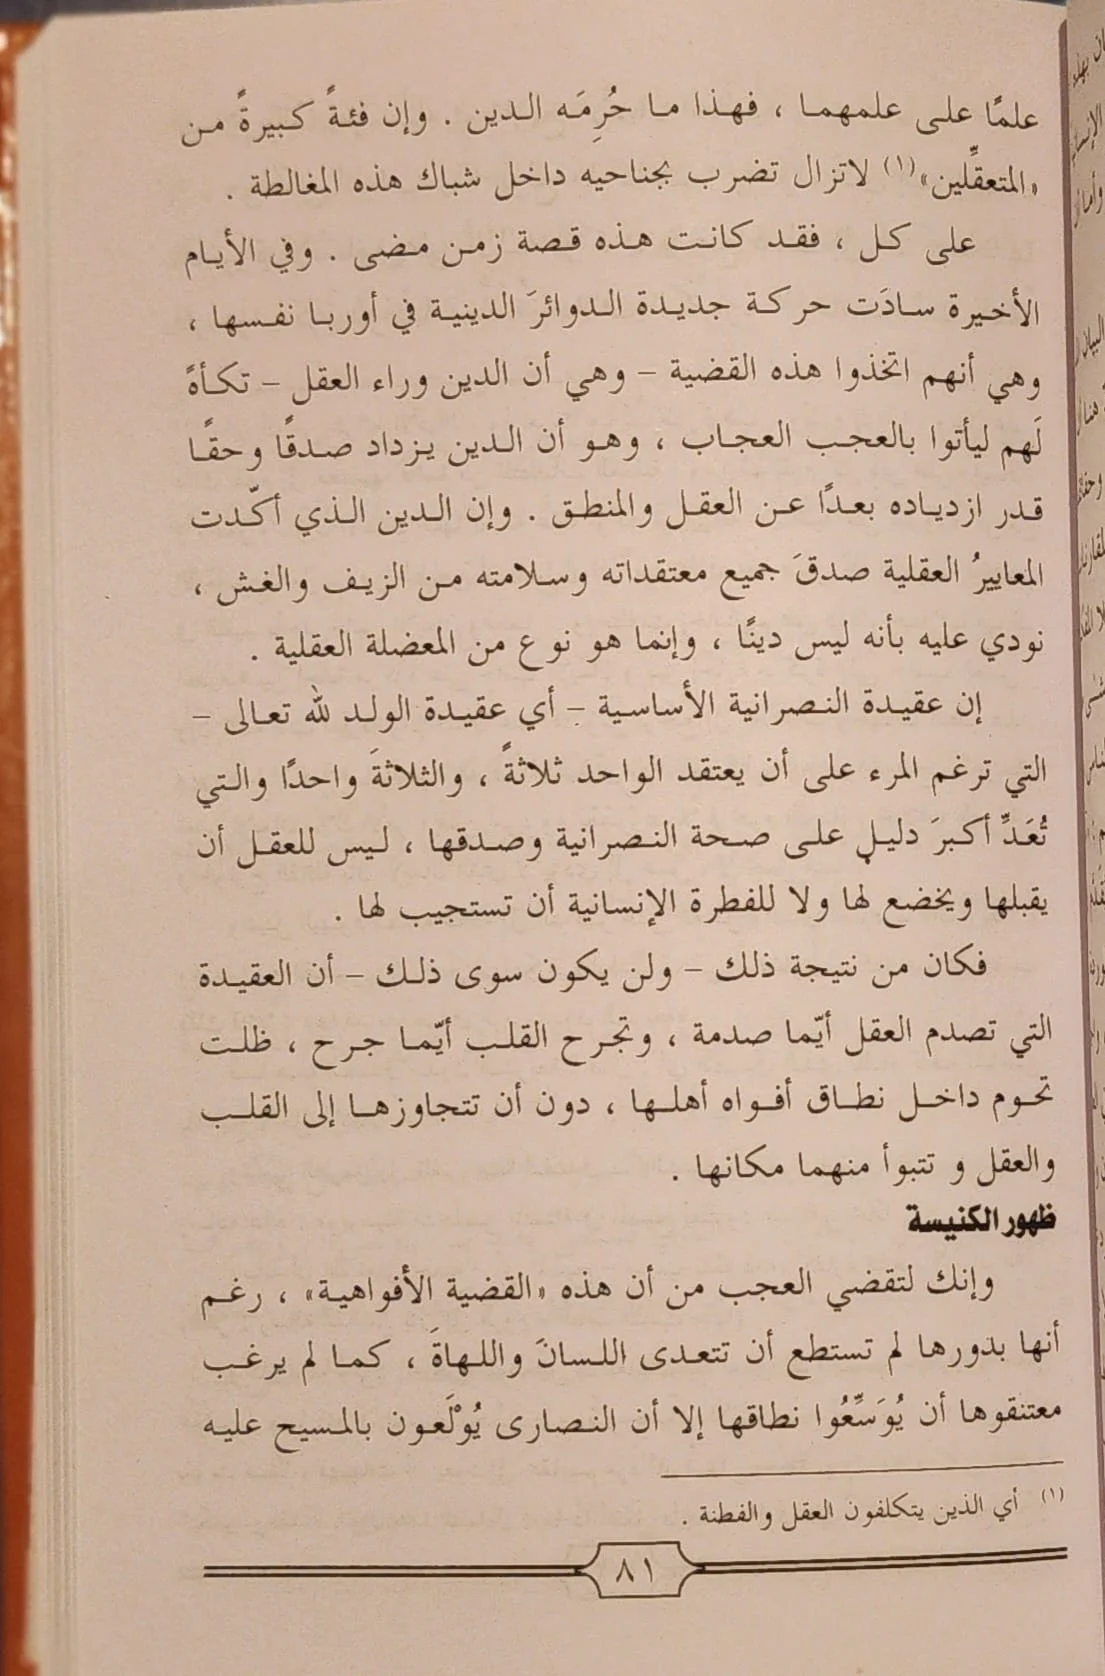 علمًا على علمهما ، فهذا ما حُرِمَه الدين . وإن فئةً كبيرةً من
«المتعقِّلين»(١) لاتزال تضرب بجناحيه داخل شباك هذه المغالطة .
على كل ، فقد كانت هذه قصة زمن مضى . وفي الأيام
الأخيرة سادَت حركة جديدة الدوائرَ الدينية في أوربا نفسها ،
وهي أنهم اتخذوا هذه القضية – وهي أن الدين وراء العقل – تكأةً
لَهم ليأتوا بالعجب العجاب ، وهو أن الدين يزداد صدقًا وحقًا
قدر ازدياده بعدًا عن العقل والمنطق . وإن الدين الذي أكّدت
المعاييرُ العقلية صدقَ جميع معتقداته وسلامته من الزيف والغش ،
نودي عليه بأنه ليس دينًا ، وإنما هو نوع من المعضلة العقلية .
إن عقيدة النصرانية الأساسية – أي عقيدة الولد لله تعالى –
التي ترغم المرء على أن يعتقد الواحد ثلاثةً ، والثلاثةَ واحدًا والتي
تُعَدِّ أكبرَ دليلٍ على صحة النصرانية وصدقها ، ليس للعقل أن
يقبلها ويخضع لها ولا للفطرة الإنسانية أن تستجيب لها .
فكان من نتيجة ذلك – ولن يكون سوى ذلك – أن العقيدة
التي تصدم العقل أيّما صدمة ، وتجرح القلب أيّما جرح ، ظلت
تحوم داخل نطاق أفواه أهلها ، دون أن تتجاوزها إلى القلب
والعقل و تتبوأ منهما مكانها .
ظهور الكنيسة
وإنك لتقضي العجب من أن هذه «القضية الأفواهية» ، رغم
أنها بدورها لم تستطع أن تتعدى اللسانَ واللهاةَ ، كما لم يرغب
معتنقوها أن يُوَسِّعُوا نطاقها إلا أن النصارى يُوْلَعون بالمسيح عليه
(١) أي الذين يتكلفون العقل والفطنة .
٨١